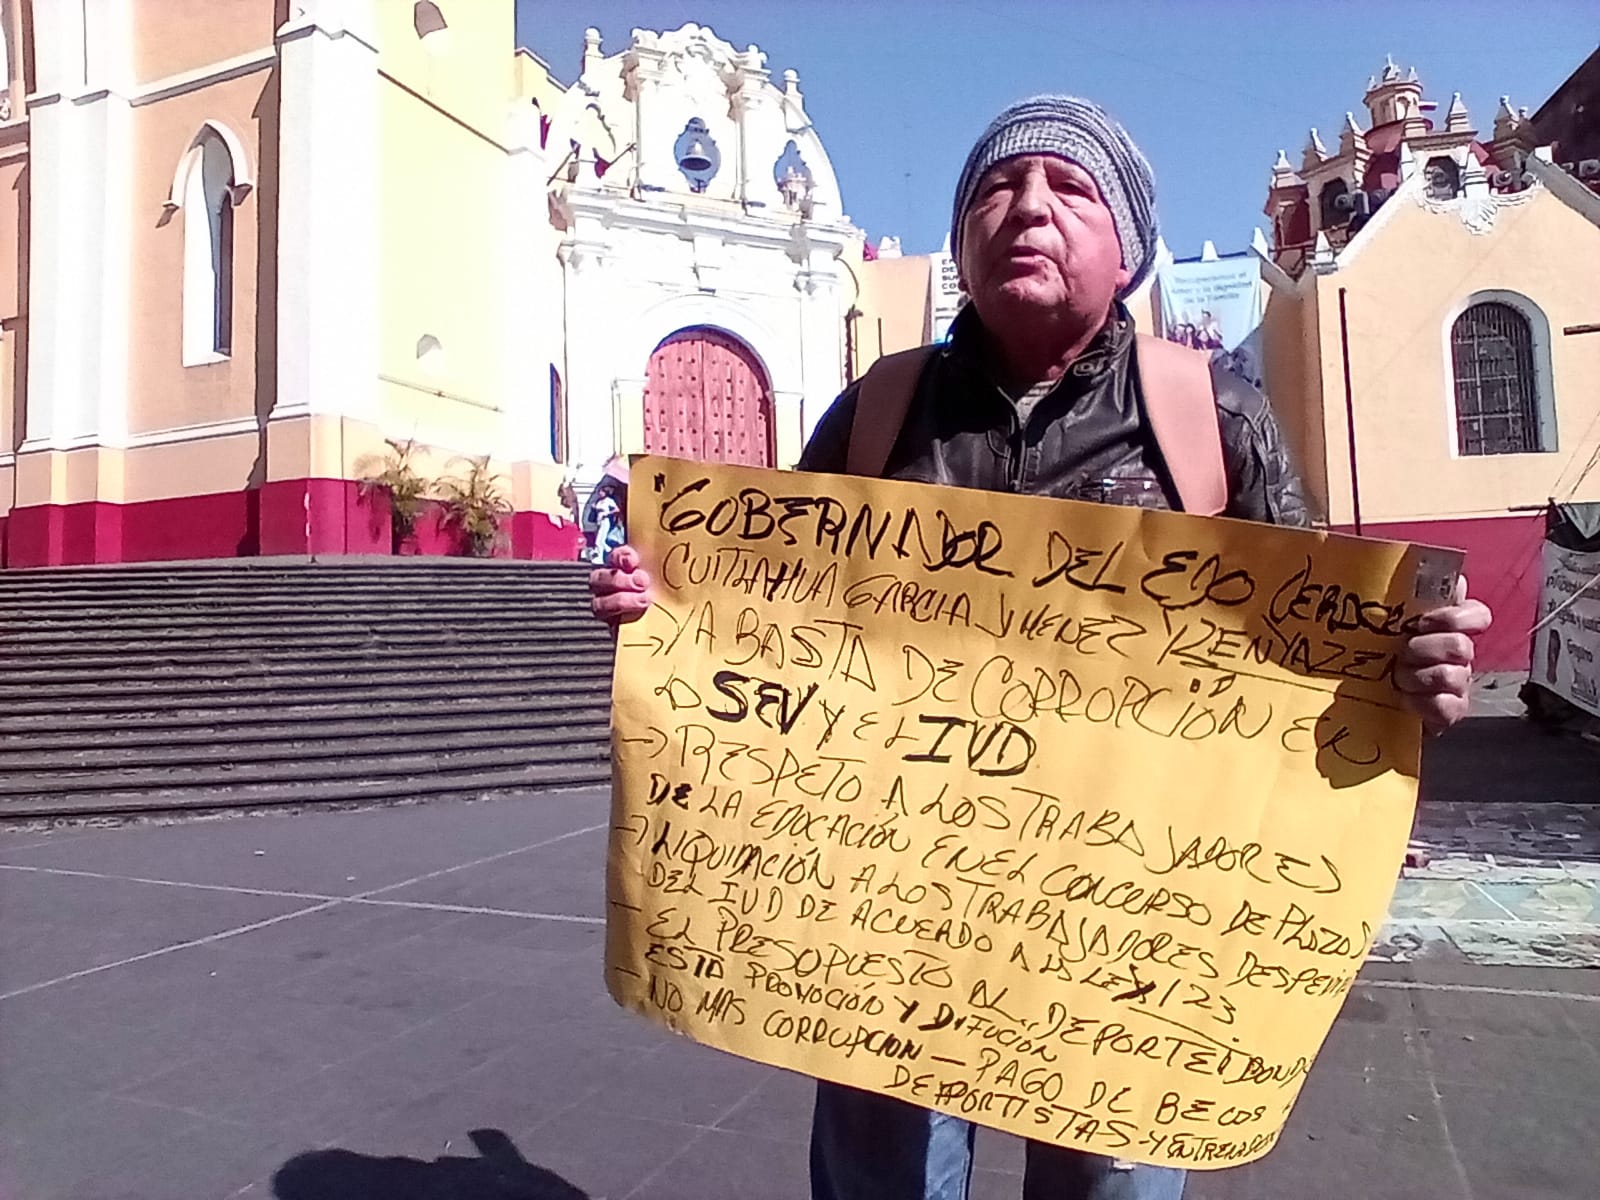 "GOBERNADOR DEL EDO
CUITLAHUA GARCIA JIMENEZ
→ YA BASTA DE CORROPCIÓN EN
LA SEV Y EL IVD
→ RESPETO A LOS TRABAJADORES
DE LA EDUCACIÓN EN EL CONCURSO DE PLAZAS
→ LIQUIDACIÓN A LOS TRABAJADORES
DEL IVD DE ACUERDO A LA LEY 123
- EL PRESUPUESTO AL DEPORTE DONDE
ESTA PROMOCIÓN Y DIFUCIÓN
- NO MAS CORRUPCION - PAGO DE BECAS A
DEPORTISTAS Y
Recuperemos el
Amor y la dignidad
de la Familia